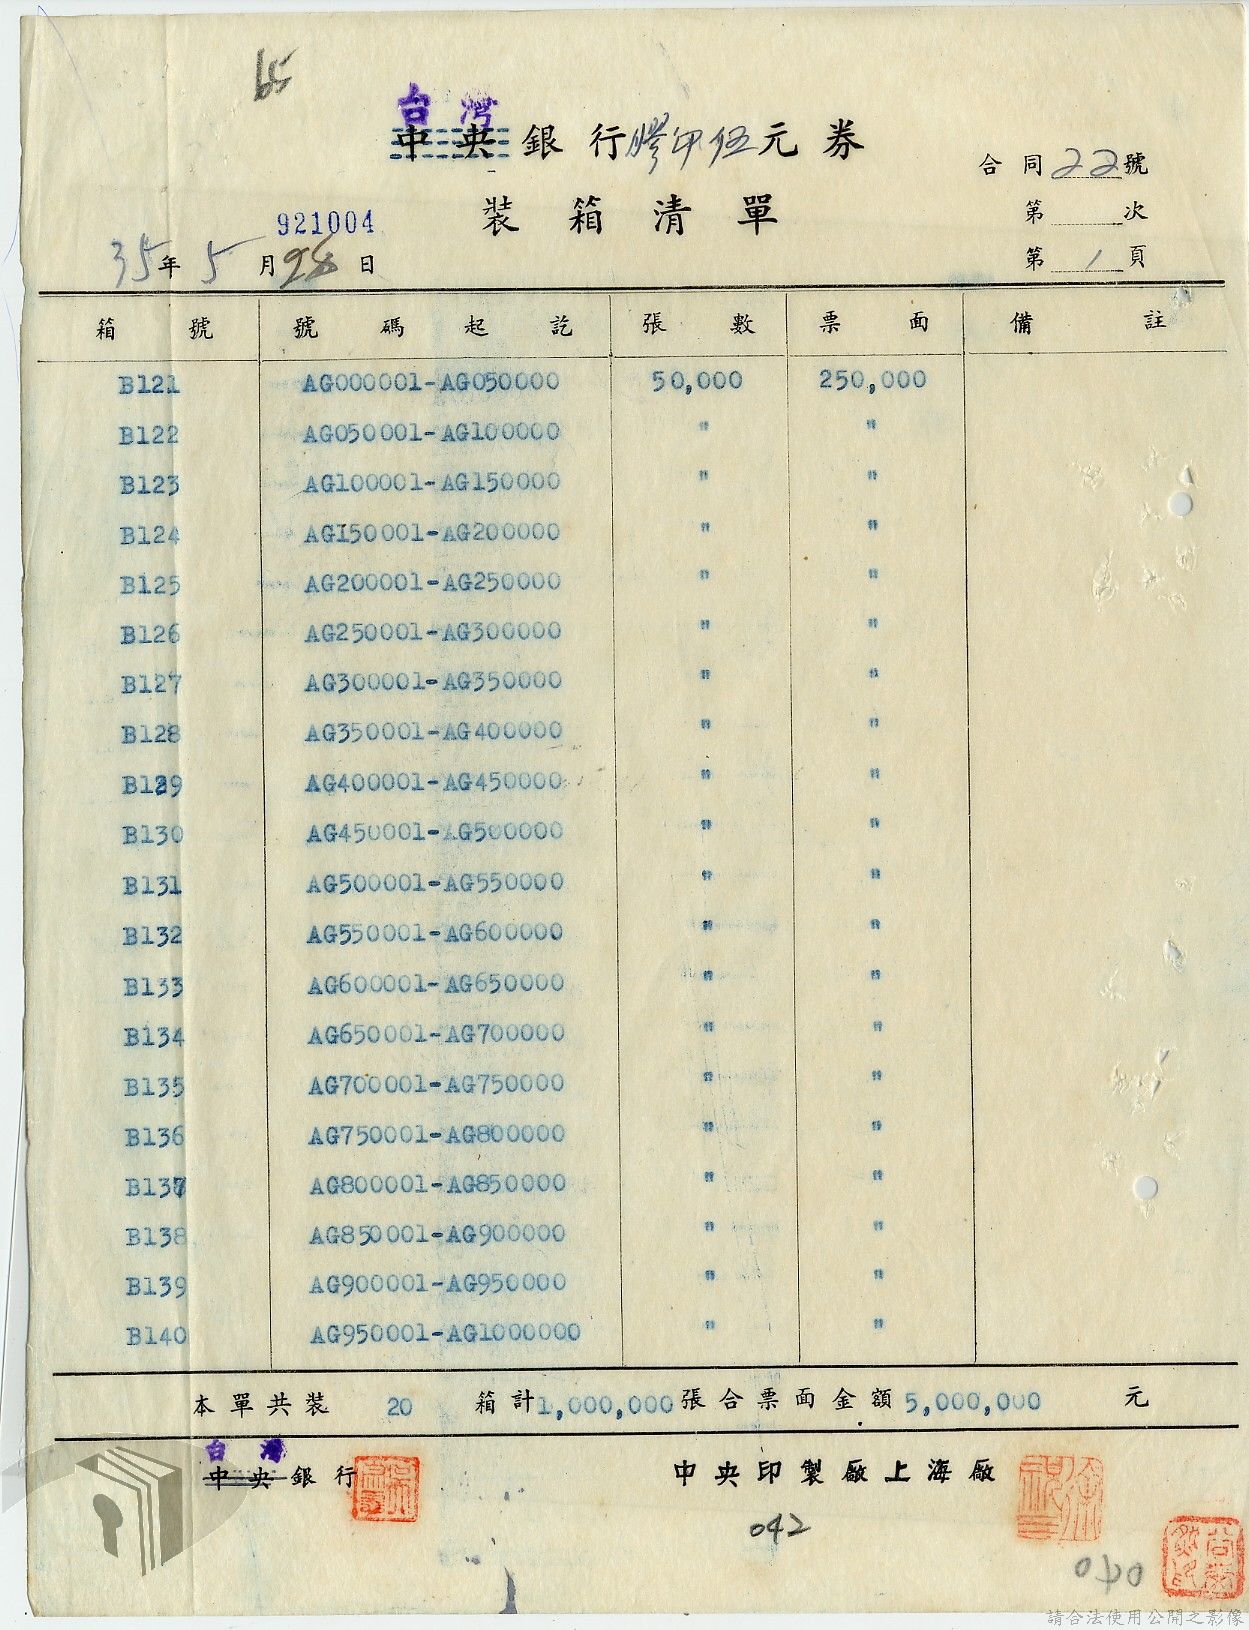 65
台灣
中央銀行膠甲伍元券
合同22號
裝箱清單
第 次
921004
35年5月28日
第1頁
箱號 號碼起訖 張數 票面 備註
B121 AG000001-AG050000 50,000 250,000
B122 AG050001-AG100000 " "
B123 AG100001-AG150000 " "
B124 AGI50001-AG200000 " "
B125 AG200001-AG250000 " "
B126 AG250001-AG300000 " "
B127 AG300001-AG350000 " "
B128 AG350001-AG400000 " "
B129 AG400001-AG450000 " "
B130 AG450001-AG500000 " "
B131 AG500001-AG550000 " "
B132 AG550001-AG600000 " "
B133 AG600001-AG650000 " "
B134 AG650001-AG700000 " "
B135 AG700001-AG750000 " "
B136 AG750001-AG800000 " "
B137 AG800001-AG850000 " "
B138 AG850001-AG900000 " "
B139 AG900001-AG950000 " "
B140 AG950001-AG1000000 " "
本單共裝 20 箱計1,000,000張合票面金額5,000,000 元
台灣
中央銀行 中央印製廠上海廠
042
040
請合法使用公開之影像